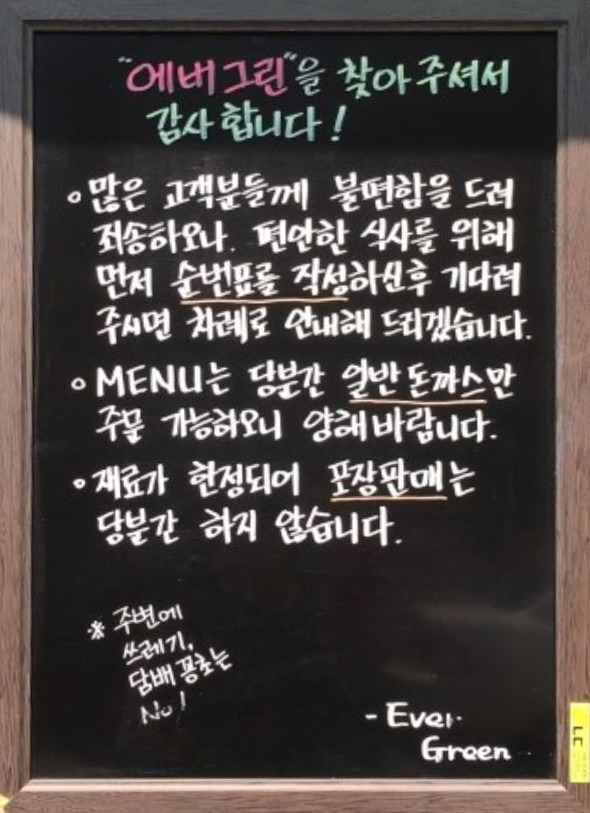 "에버그린"을 찾아 주셔서
감사합니다!
o 많은 고객분들께 불편함을 드려
죄송하오나. 편안한 식사를 위해
먼저 순번표를 작성하신후 기다려
주시면 차례로 안내해 드리겠습니다.
o MENU는 당분간 일반 돈까스만
주문 가능하오니 양해바랍니다.
o 재료가 한정되어 포장판매는
당분간 하지 않습니다.
※ 주변에
쓰레기,
담배 꽁초는
No!
- Ever
Green
LC